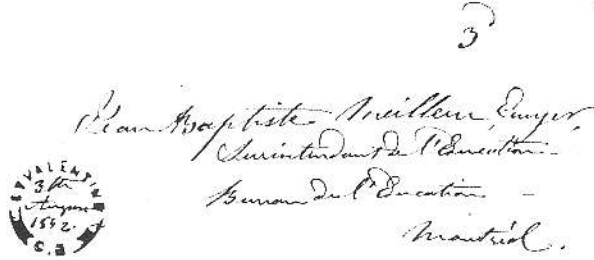 3
Jean Baptiste Meilleur, Ecuyer,
Surintendant de l'Education
Bureau de l'Education
Montréal.
ST VALENTINE
3th
August
1552.
C.E.